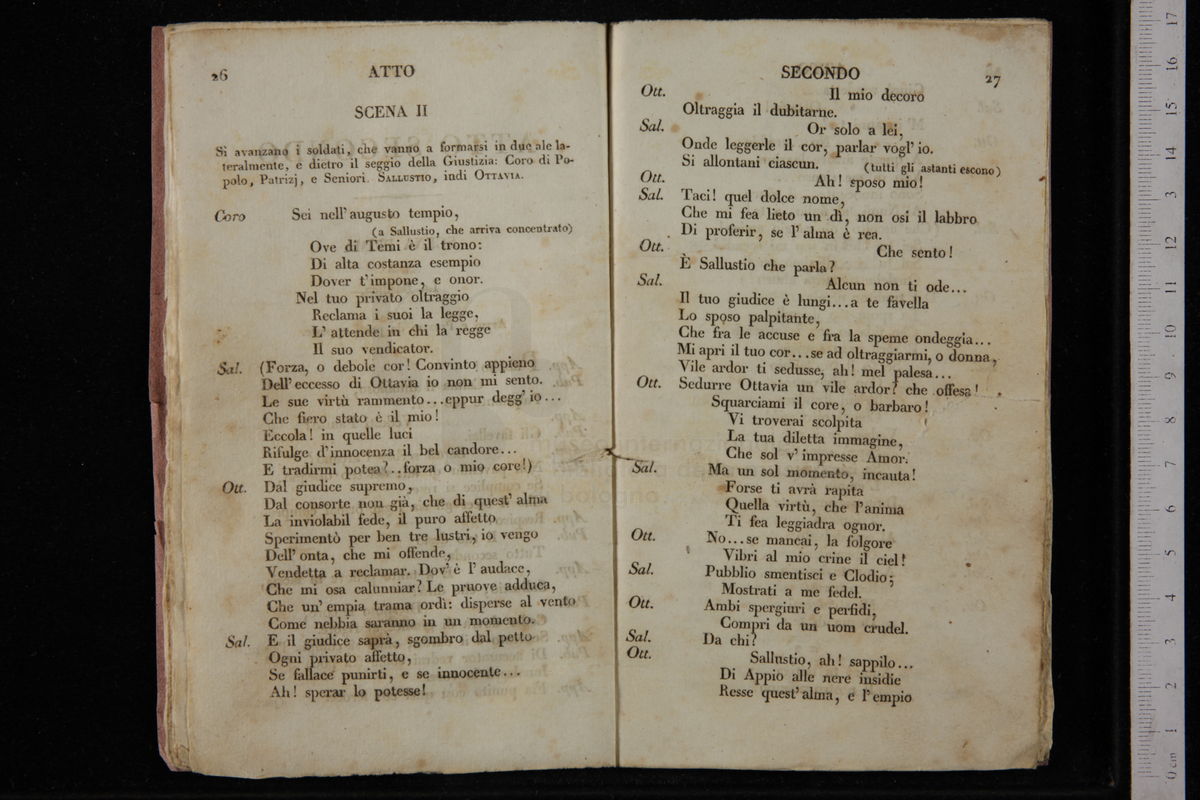 26
ATTO
SCENA II
Si avanzano i soldati, che vanno a formarsi in due ale la-
teralmente, e dietro il seggio della Giustizia: Coro di Po-
polo, Patrizj, e Seniori. SALLUSTIO, indi OTTAVIA.
Coro Sei nell' augusto tempio,
(a Sallustio, che arriva concentrato)
Ove di Temi è il trono:
Di alta costanza esempio
Dover t'impone, e onor.
Nel tuo privato oltraggio
Reclama i suoi la legge,
L' attende in chi la regge
Il suo vendicator.
Sal. (Forza, o debole cor! Convinto appieno
Dell' eccesso di Ottavia io non mi sento.
Le sue virtù rammento...eppur degg' io...
Che fiero stato è il mio!
Eccola! in quelle luci
Rifulge d'innocenza il bel candore...
E tradirmi potea?..forza o mio core!)
Ott. Dal giudice supremo,
Dal consorte non già, che di quest' alma
La inviolabil fede, il puro affetto
Sperimentò per ben tre lustri, io vengo
Dell' onta, che mi offende,
Vendetta a reclamar. Dov' è l' audace,
Che mi osa calunniar? Le pruove adduca,
Che un' empia trama ordì: disperse al vento
Come nebbia saranno in un momento.
Sal. E il giudice saprà, sgombro dal petto
Ogni privato affetto,
Se fallace punirti, e se innocente...
Ah! sperar lo potesse!
SECONDO
27
Ott. Il mio decoro
Oltraggia il dubitarne.
Sal. Or solo a lei,
Onde leggerle il cor, parlar vogl' io.
Si allontani ciascun. (tutti gli astanti escono)
Ott. Ah! sposo mio!
Sal. Taci! quel dolce nome,
Che mi fea lieto un dì, non osi il labbro
Di proferir, se l' alma è rea.
Ott. Che sento!
È Sallustio che parla?
Sal. Alcun non ti ode...
Il tuo giudice è lungi...a te favella
Lo sposo palpitante,
Che fra le accuse e fra la speme ondeggia...
Mi apri il tuo cor...se ad oltraggiarmi, o donna,
Vile ardor ti sedusse, ah! mel palesa...
Ott. Sedurre Ottavia un vile ardor? che offesa!
Squarciami il core, o barbaro!
Vi troverai scolpita
La tua diletta immagine,
Che sol v' impresse Amor.
Sal. Ma un sol momento, incauta!
Forse ti avrà rapita
Quella virtù, che l'anima
Ti fea leggiadra ognor.
Ott. No...se mancai, la folgore
Vibri al mio crine il ciel!
Sal. Pubblio smentisci e Clodio;
Mostrati a me fedel.
Ott. Ambi spergiuri e perfidi,
Compri da un uom crudel.
Sal. Da chi?
Ott. Sallustio, ah! sappilo...
Di Appio alle nere insidie
Resse quest' alma, e l' empio